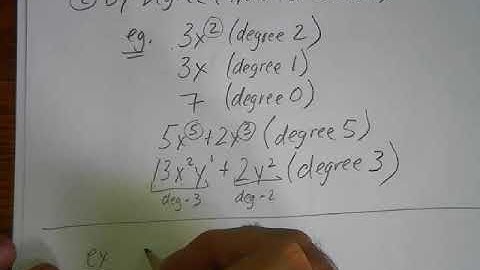 ② by degree
eg. 3x² (degree 2)
3x (degree 1)
7 (degree 0)
5x⁵+2x³ (degree 5)
13x²y¹ + 2y² (degree 3)
deg=3 deg=2
ex